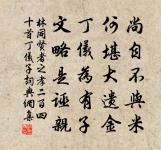 尚自不與米
何堪大遺金
丁儀為有子
文略是誣親
林同賢者之孝二百四
十首丁儀子詞典網集